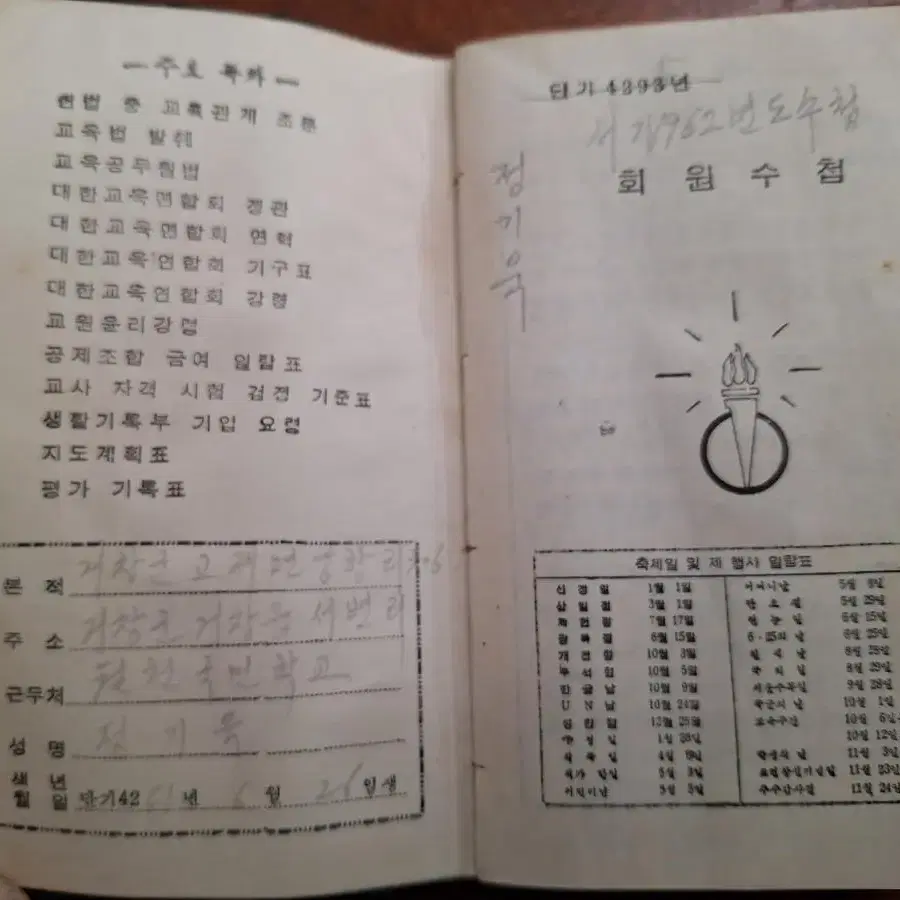 — 주요 목차 —
헌법 중 교육관계 조문
교육법 발췌
교육공무원법
대한교육연합회 정관
대한교육연합회 연혁
대한교육연합회 기구표
대한교육연합회 강령
교원윤리강령
공제조합 금여 일람표
교사 자격 시험 검정 기준표
생활기록부 기입 요령
지도계획표
평가 기록표
본 적 거창군
주 소 거창군 거창읍 서변리
근무처 월천국민학교
성 명 정기욱
생년월일 단기42 년 6월 26일생
단기 4293년
서기1962년도수첩
정기욱
회원수첩
축제일 및 제 행사 일람표
신정일 1월 1일
삼일절 3월 1일
제헌절 7월 17일
광복절 8월 15일
개천절 10월 3일
추석절 10월 5일
한글날 10월 9일
U N 날 10월 24일
성탄일 12월 25일
식목일
석가 탄일 5월 3일
어린이날 5월 5일
어머니날 5월 8일
단오절 5월 29일
권농일 6월 15일
6·25의 날 6월 25일
8월 28일
8월 29일
9월 28일
국군의 날 10월 1일
교육주간 10월 6일
10월 12일
학생의 날 11월 3일
11월 23일
추수감사절 11월 24일